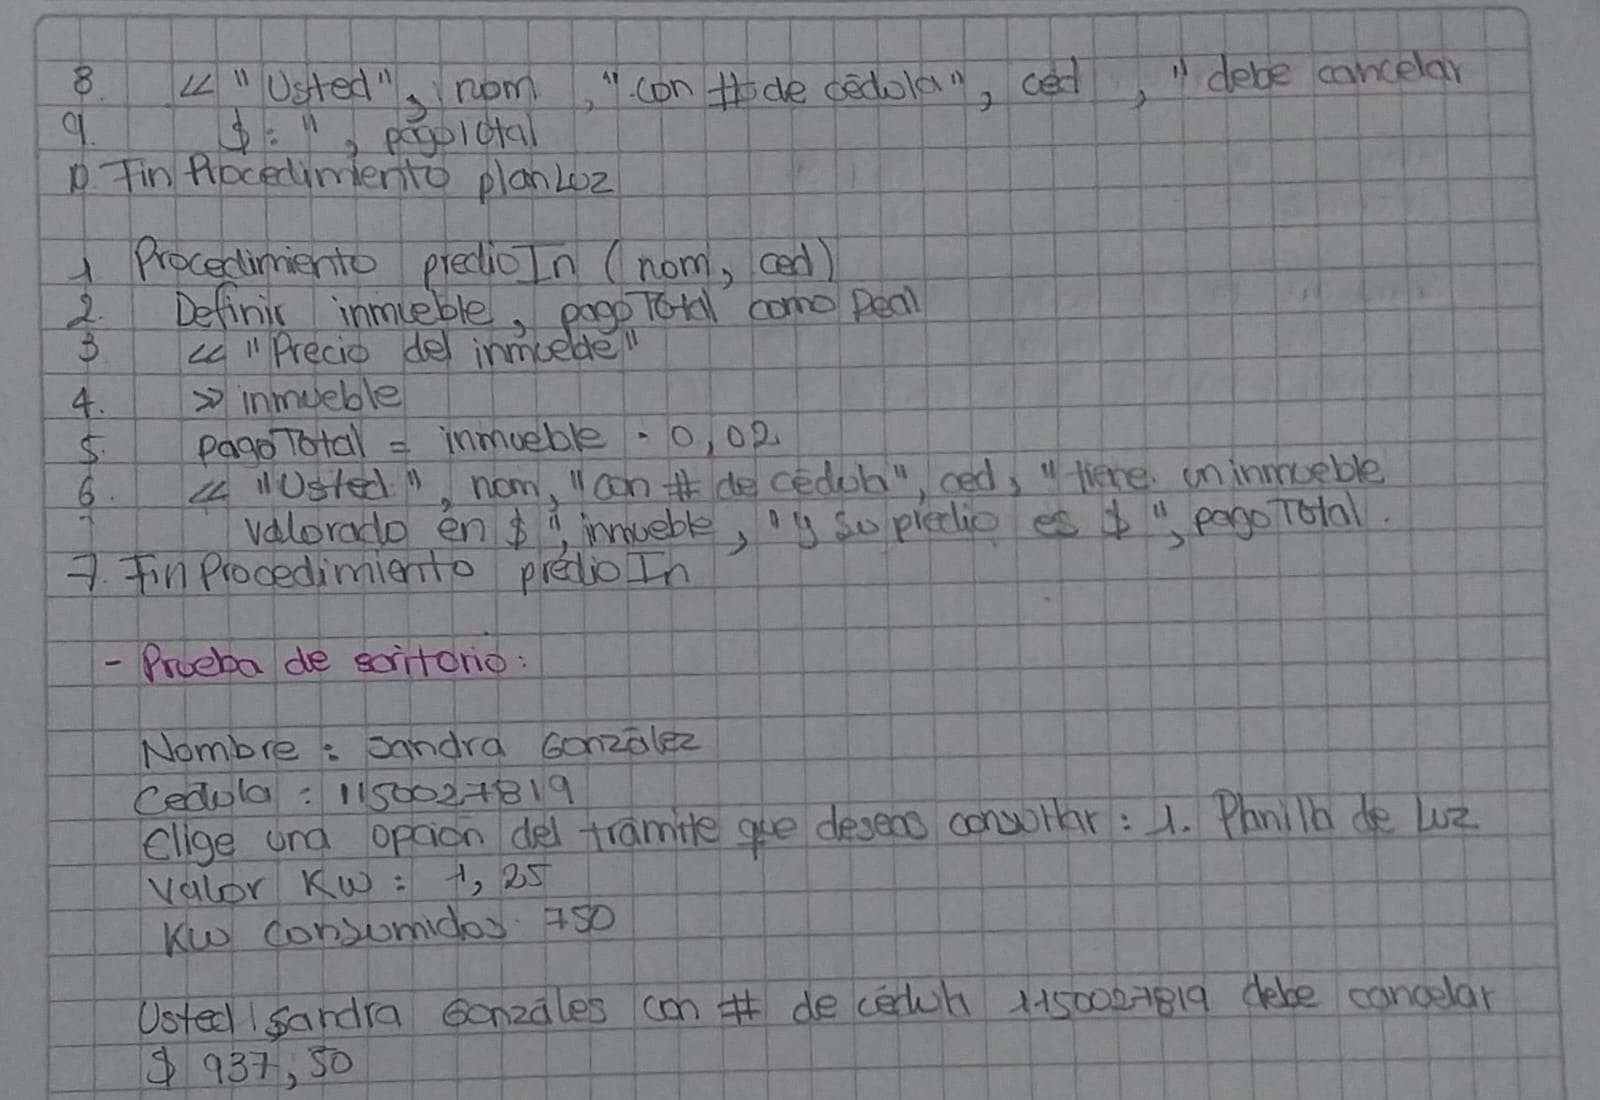 8. << "Usted", nom, "con # de cédula", ced, "debe cancelar
9. $: ", pagoTotal
10. Fin Procedimiento planLuz
1 Procedimiento predioIn (nom, ced)
2. Definir inmueble, pagoTotal como Real
3 << "Precio del inmuede"
4. >> inmueble
5. pagoTotal = inmueble · 0,02.
6. << "Usted", nom, "con # de cédula", ced, "tiene un inmueble
valorado en $", inmueble, "y su predio es $", pagoTotal.
7. Fin Procedimiento predioIn
- Prueba de escritorio:
Nombre: Sandra González
Cedula: 1150027819
Elige una opción del trámite que deseas consultar: 1. Planilla de Luz
Valor Kw: 1,25
Kw consumidos: 750
Usted Sandra Gonzáles con # de cédula 1150027819 debe cancelar
$ 937,50